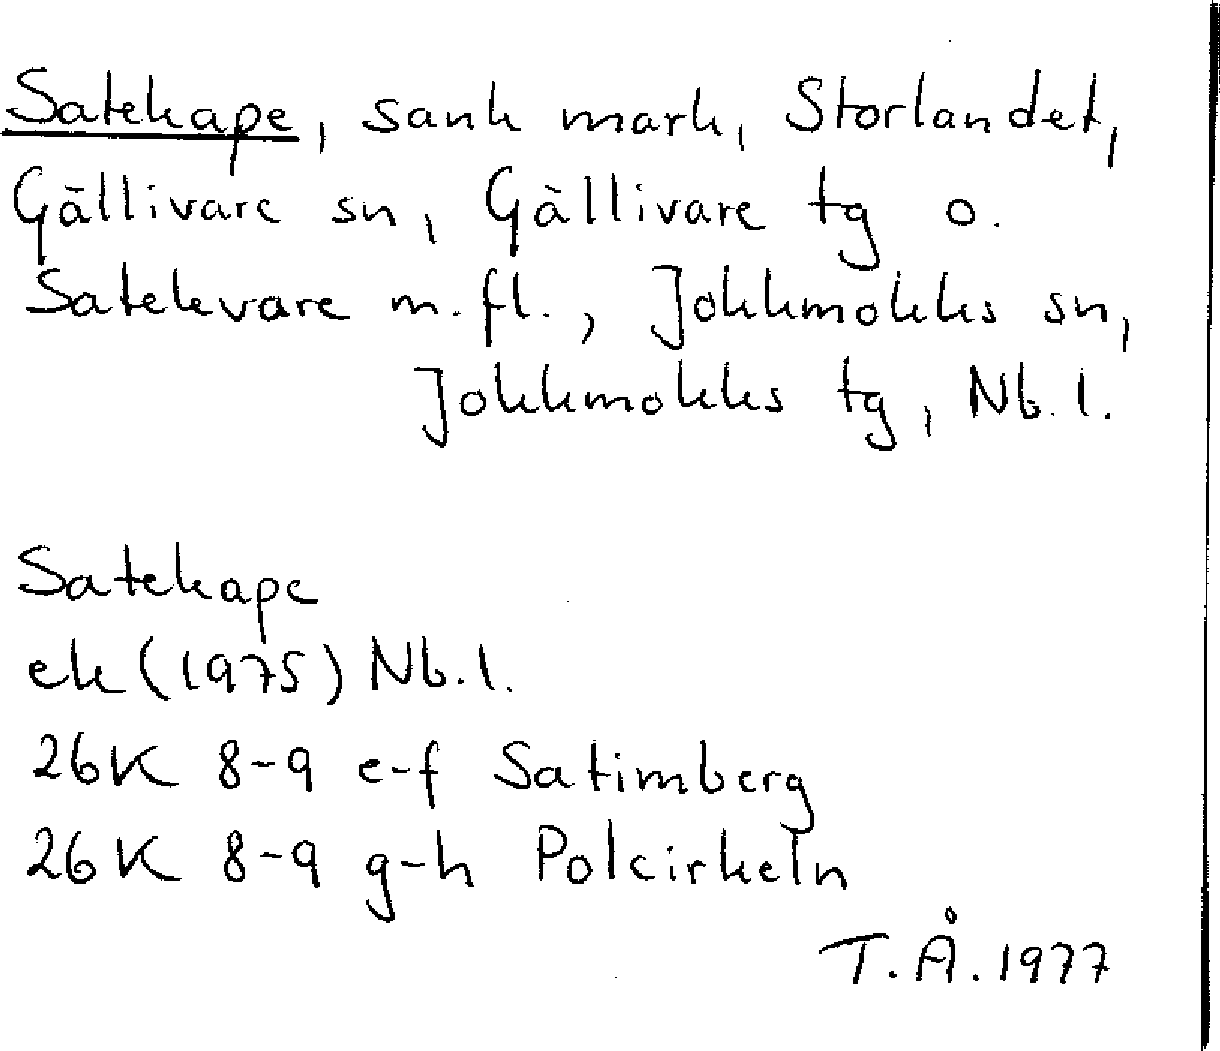 Satekape, sank mark, Storlandet,
Gällivare sn, Gällivare tg o.
Satekvare m.fl., Jokkmokks sn,
Jokkmokks tg, Nb. l.
Satekape
ek (1975) Nb. l.
26K 8-9 e-f Satimberg
26K 8-9 g-h Polcirkeln
T.Å. 1977